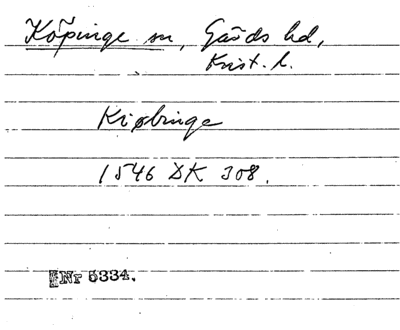 Köpinge sn, Gärds hd,
Krist. l.
Kiøbinge
1546 DK 308.
Nr 5334.